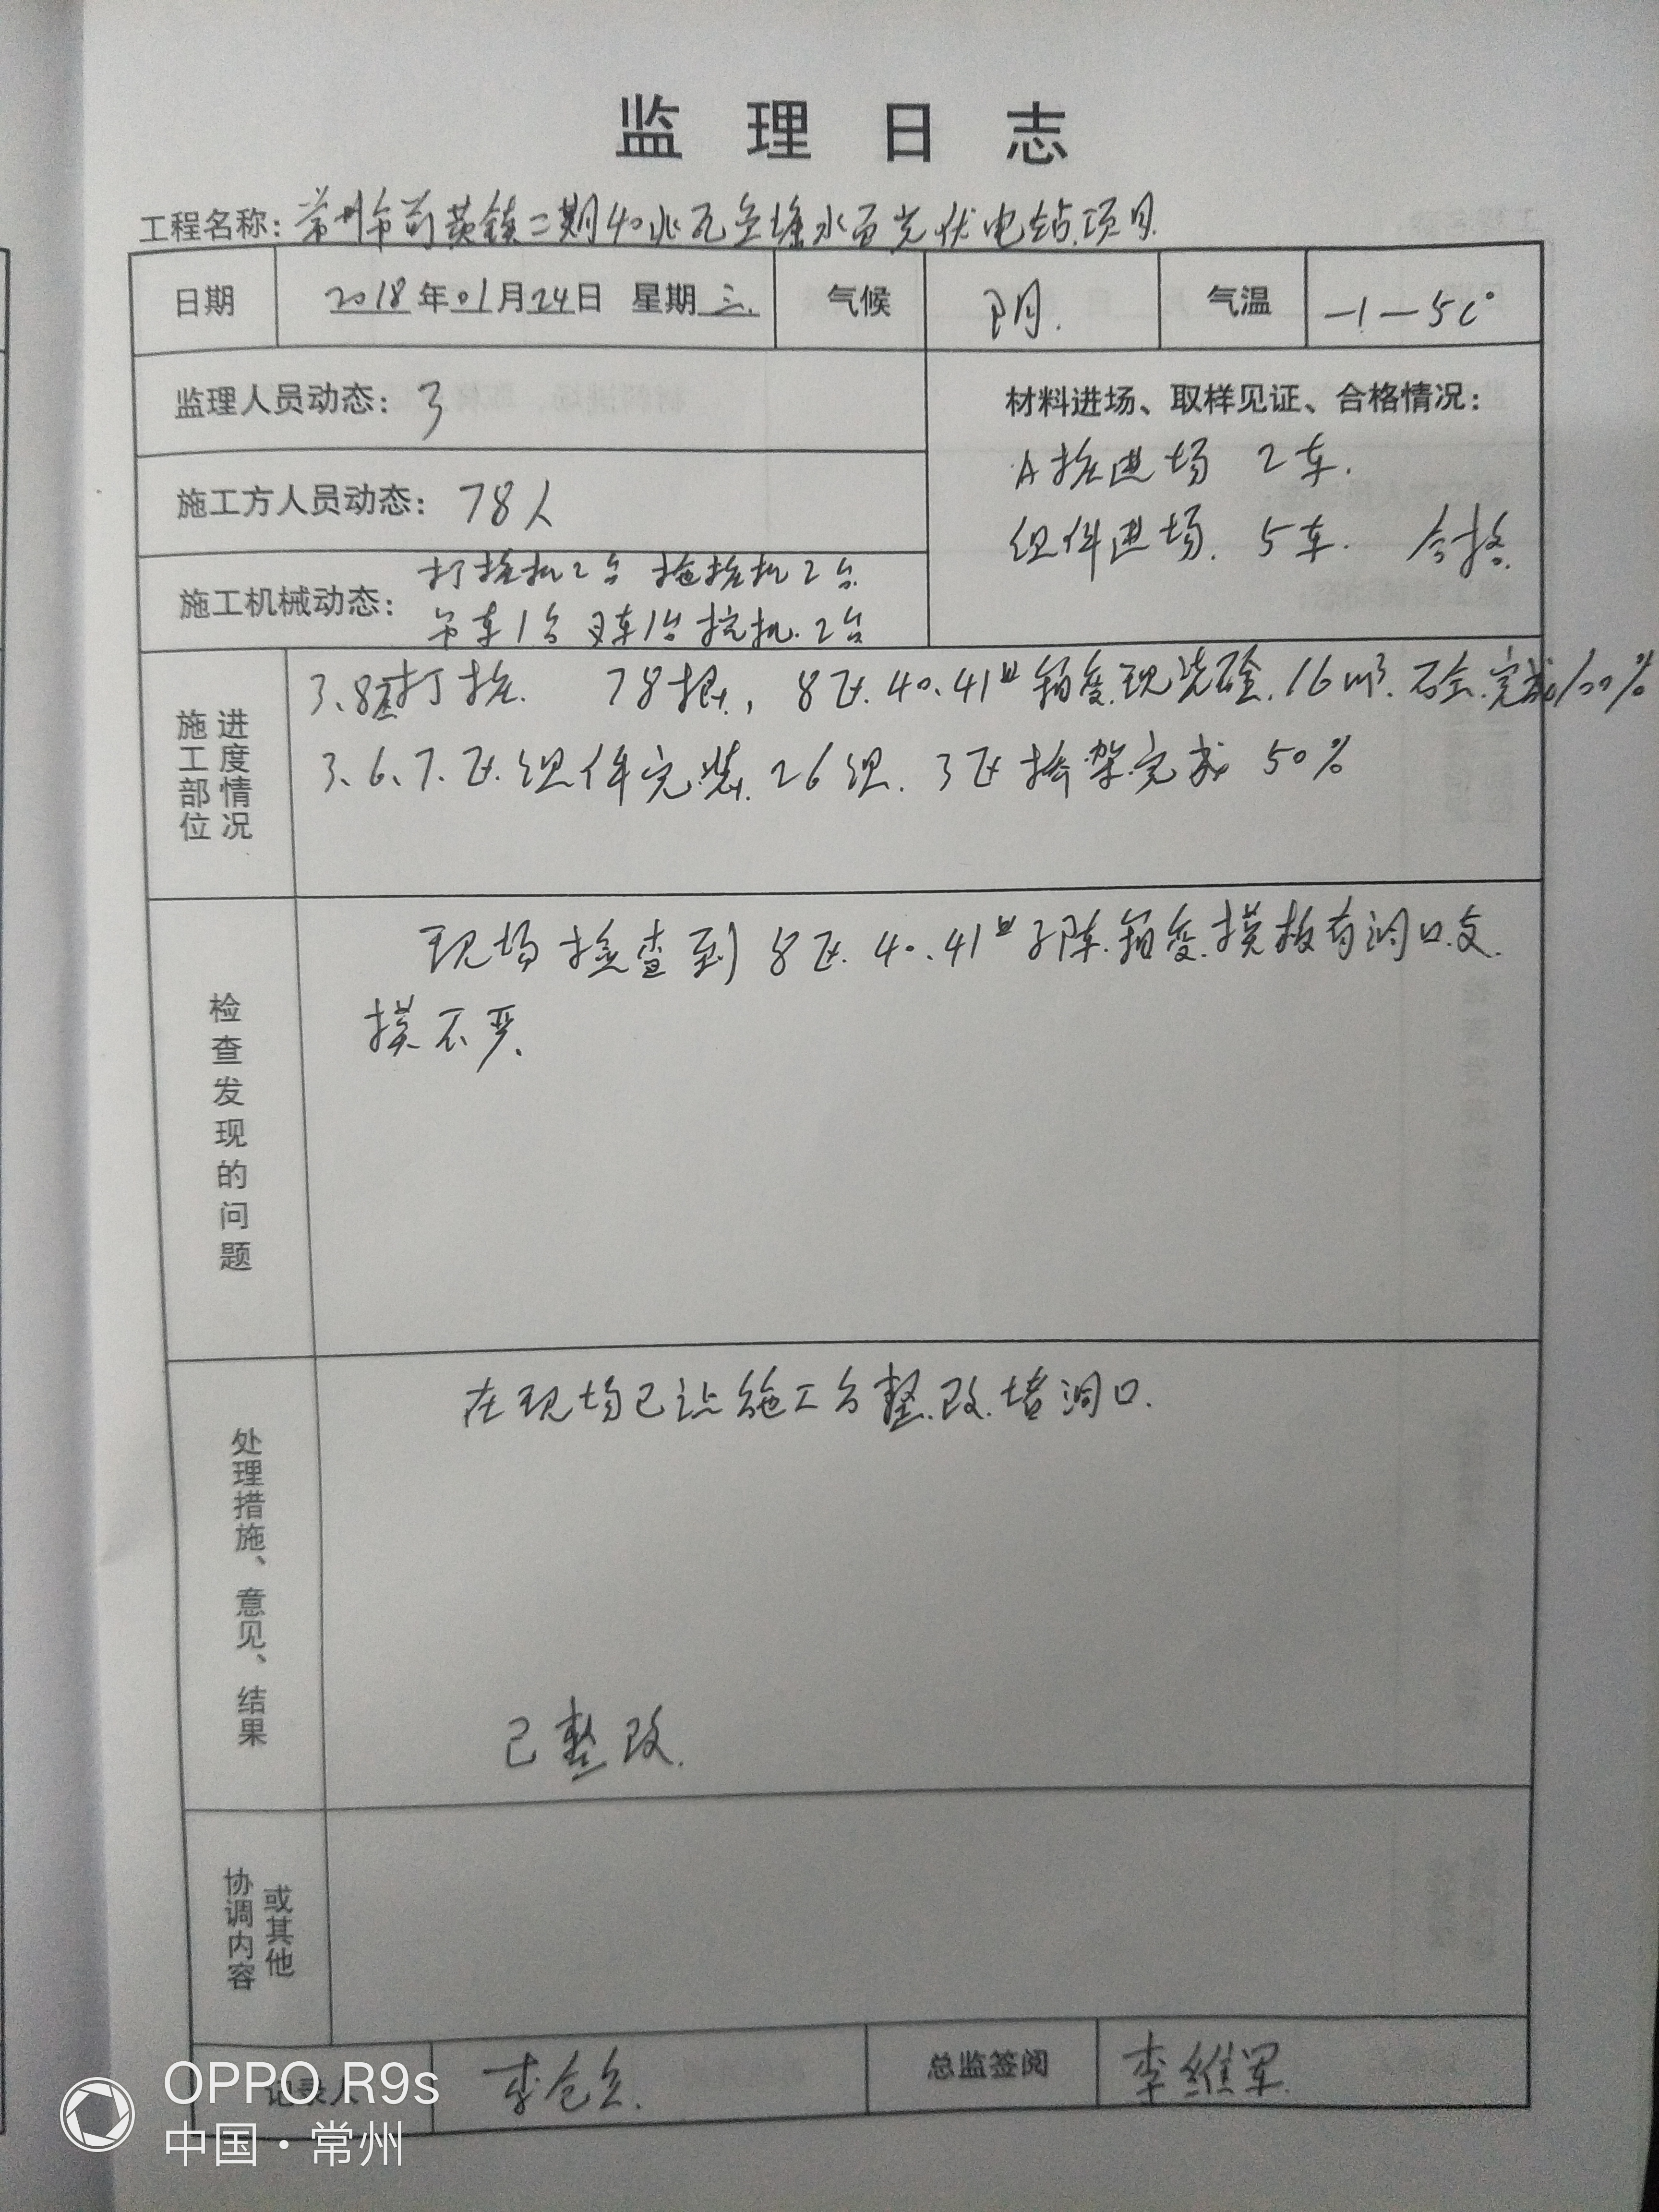 监理日志
工程名称：常州市前黄镇二期40兆瓦鱼塘水面光伏电站项目
日期 2018年01月24日 星期三. 气候 阴. 气温 -1-5C°
监理人员动态：3
材料进场、取样见证、合格情况：
A桩进场 2车.
施工方人员动态：78人
组件进场. 5车. 合格.
施工机械动态：打桩机2台 拖桩机2台
吊车1台 叉车1台 挖机.2台
施工部位 进度情况
3.8区打桩. 78根, 8区.40.41# 现浇砼.16m³. 完成100%
3.6.7.区.组件完装.26组. 3区桥架完成 50%
检查发现的问题
现场检查到8区.40.41#子阵.箱变.模板有洞口.支
模不严.
处理措施、意见、结果
在现场已让施工方整改.堵洞口.
已整改.
协调内容 或其他
记录人 李 总监签阅 李维军
OPPO R9s
中国·常州